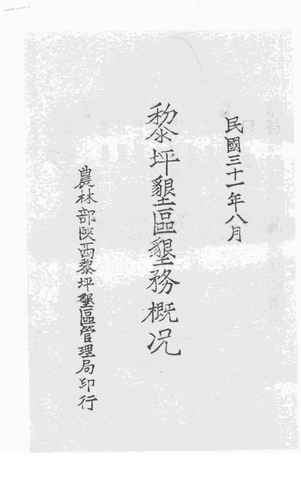 民國三十一年八月
黎坪墾區墾務概况
農林部陝西黎坪墾區管理局印行